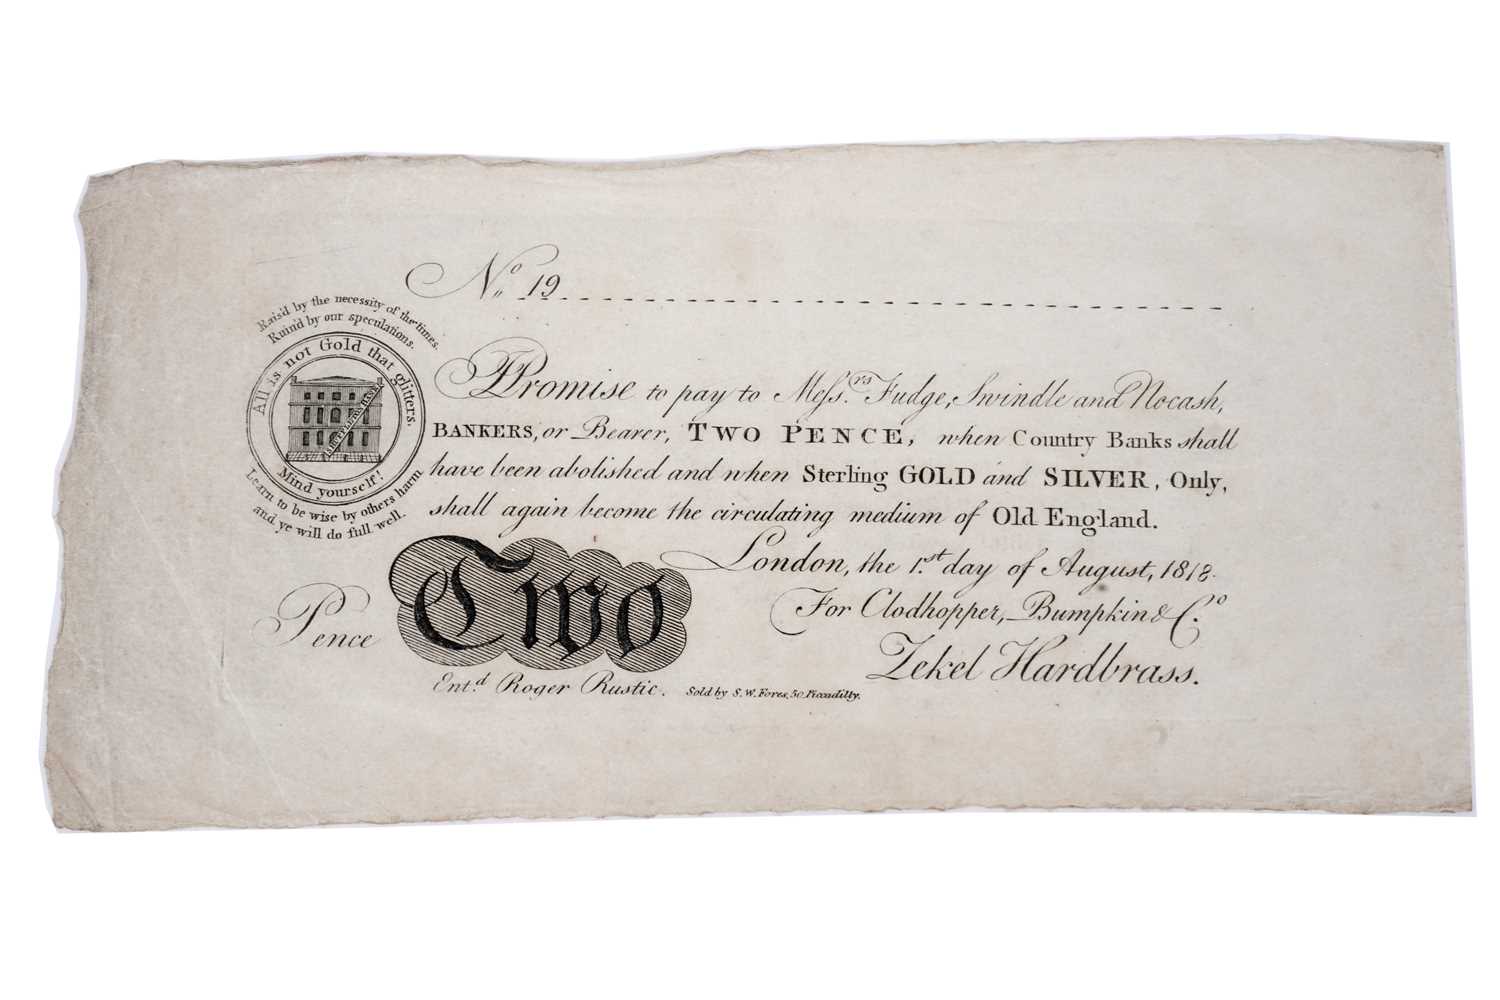 No. 19
Rais'd by the necessity of the times.
Ruin'd by our speculations.
All is not Gold that glitters.
Mind yourself!
Learn to be wise by others harm
and ye will do full well.
I Promise to pay to Messrs. Fudge, Swindle and Nocash,
BANKERS, or Bearer, TWO PENCE, when Country Banks shall
have been abolished and when Sterling GOLD and SILVER, Only,
shall again become the circulating medium of Old England.
London, the 1.st day of August, 1818.
For Clodhopper, Bumpkin & Co.
Pence Two
Zekel Hardbrass.
Ent.d Roger Rustic. Sold by S. W. Fores, 50, Piccadilly.